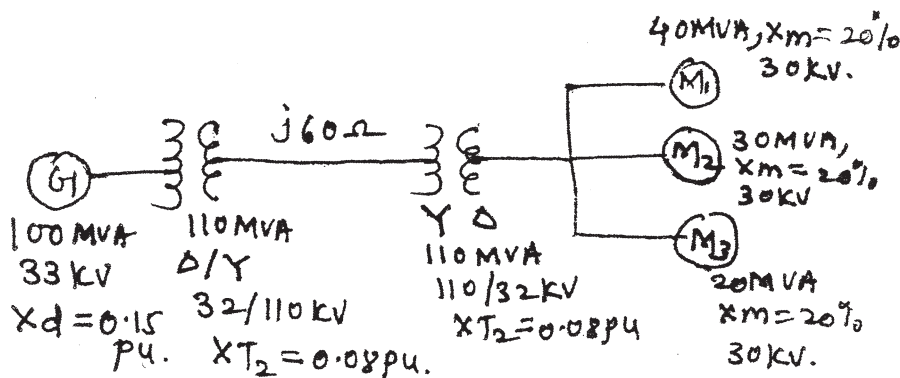 40MVA, Xm = 20%
30KV.
M1
j60Ω
30MVA,
Xm = 20%
30KV
M2
G1
100 MVA
33 KV
Xd = 0.15
pu.
110 MVA
Δ/Y
32/110 KV
XT2 = 0.08pu.
Y Δ
110 MVA
110/32KV
XT2 = 0.08pu
M3
20MVA
Xm = 20%
30KV.